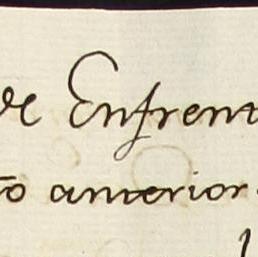 de Enfrent
to anterior.